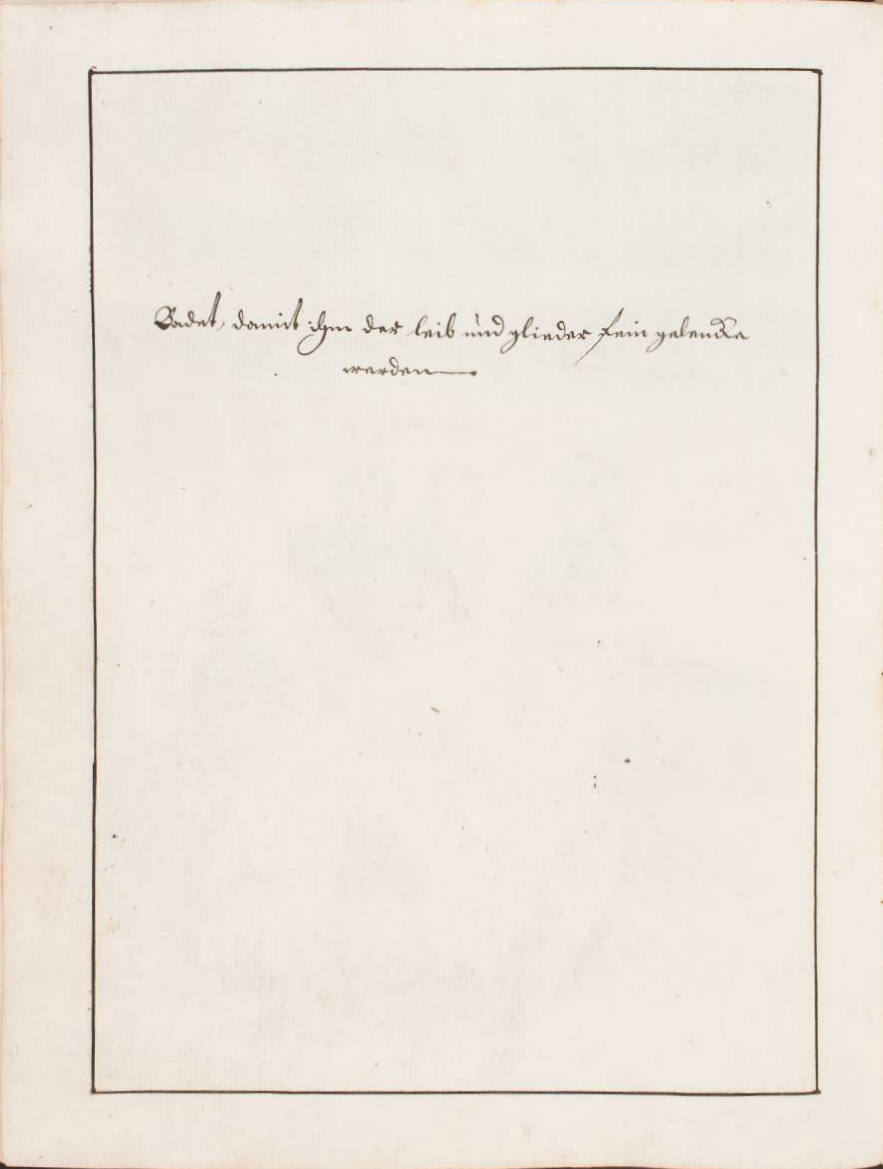 Badet, damit ihm der leib und glieder fein gelencke
werden